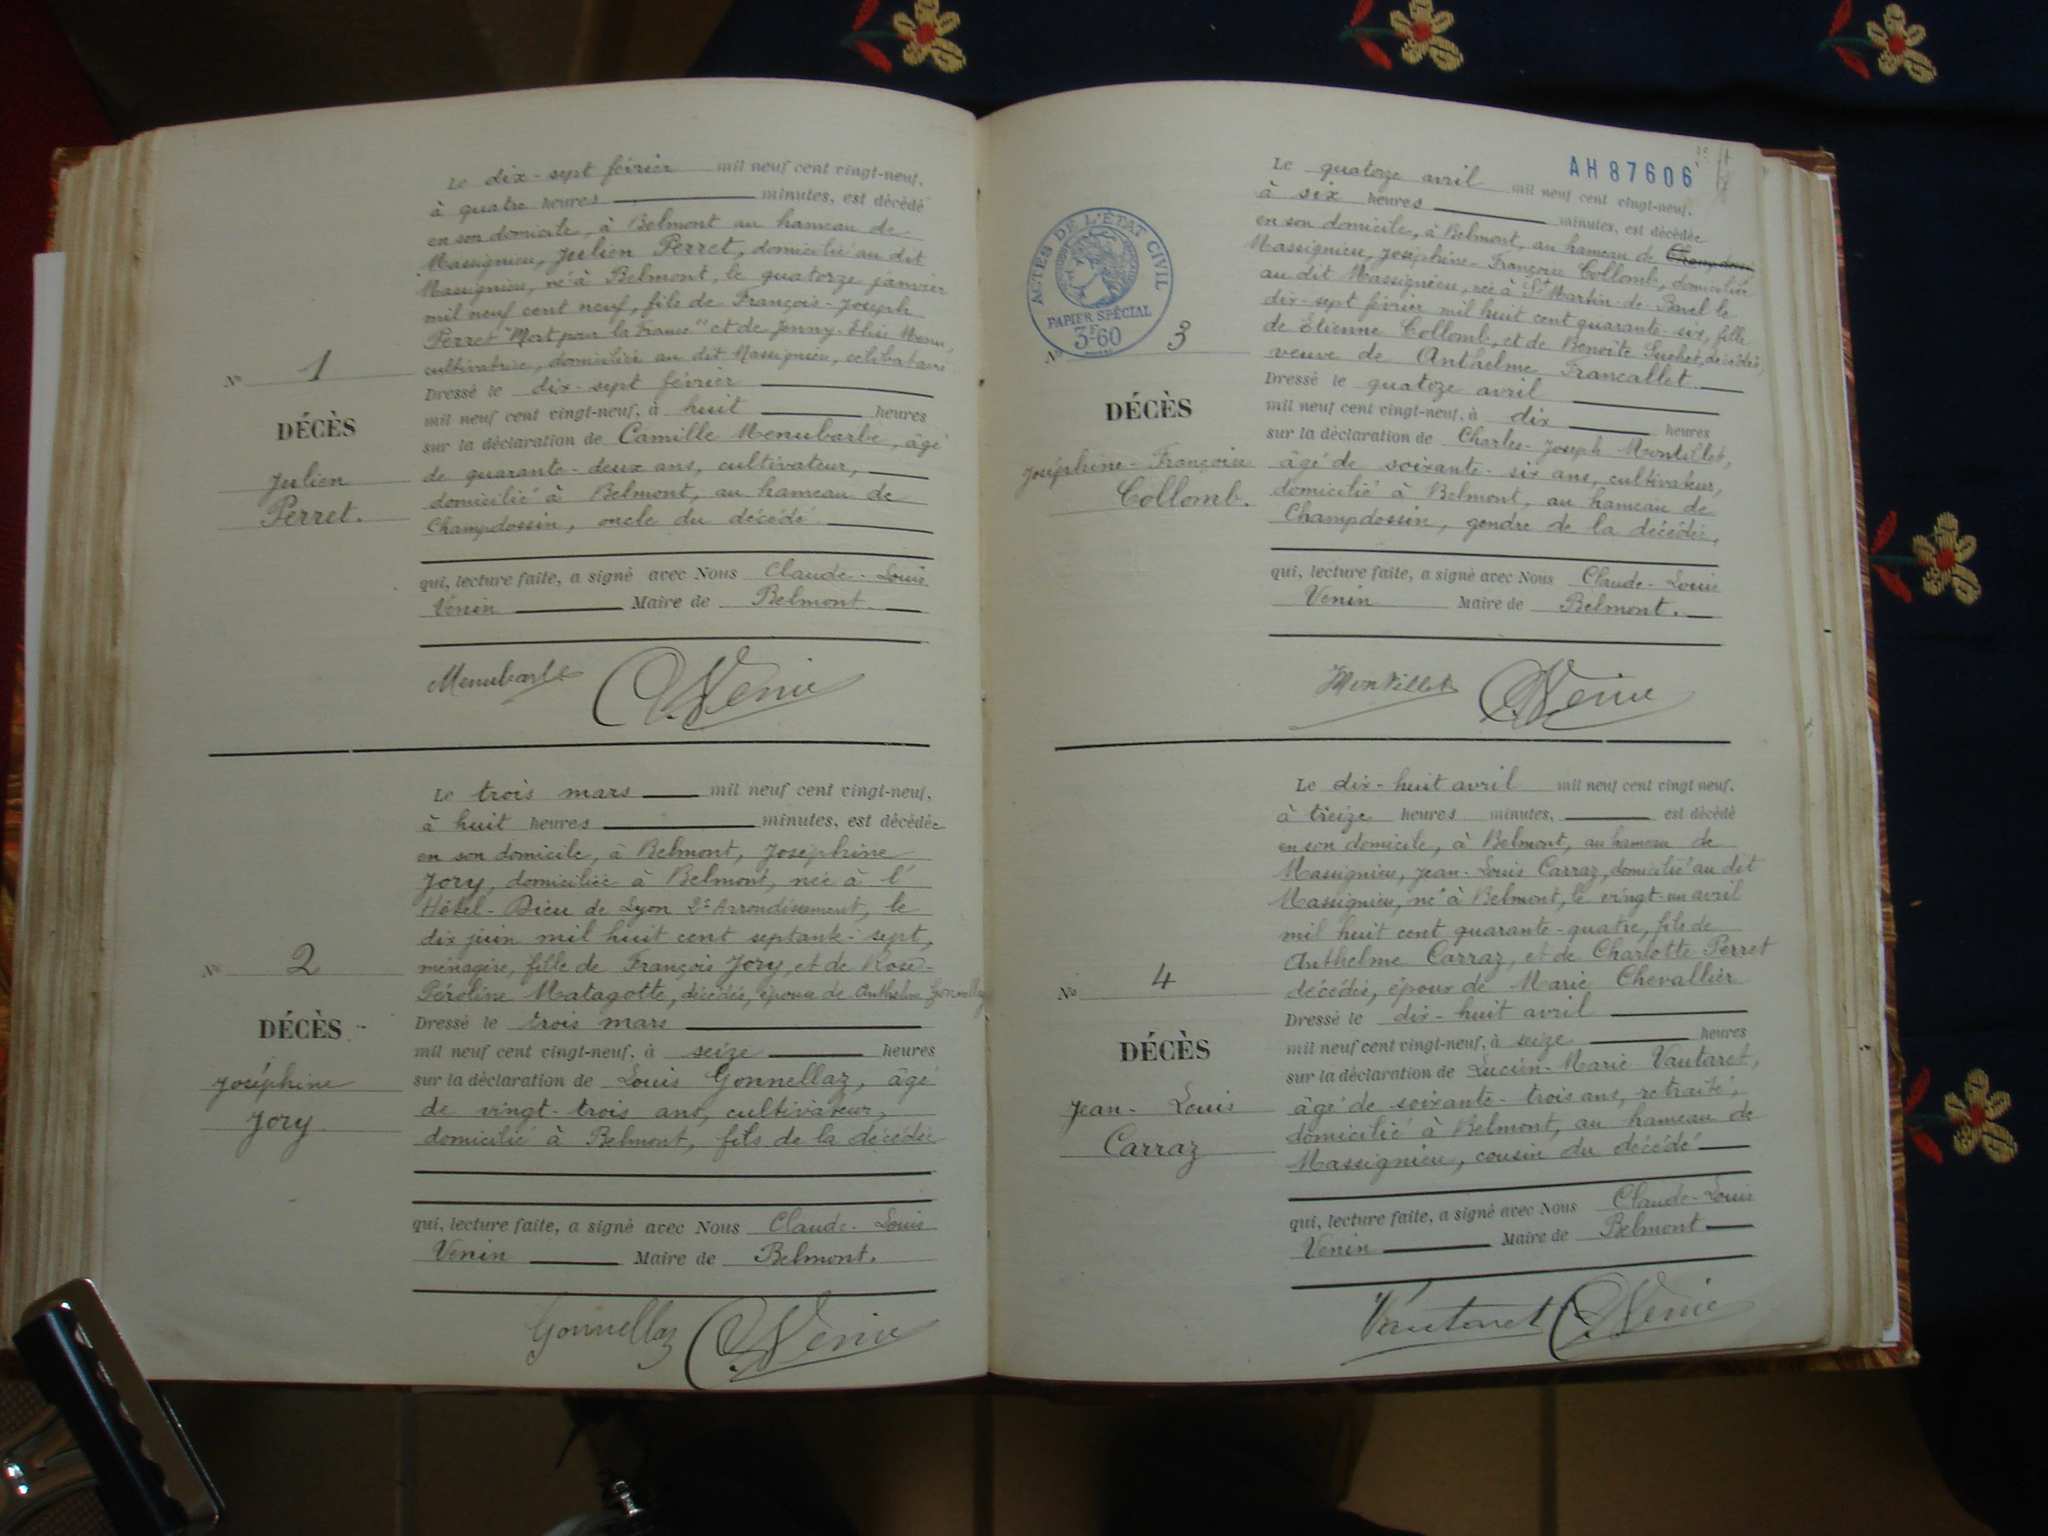 Le dix-sept février mil neuf cent vingt-neuf,
à quatre heures minutes, est décédé
en son domicile, à Belmont au hameau de
Massignieu, Julien Perret, domicilié au dit
Massignieu, né à Belmont, le quatorze janvier
mil neuf cent neuf, fils de François-Joseph
Perret "Mort pour la France" et de Jenny Elise
cultivatrice, domiciliée au dit Massignieu, célibataire
Dressé le dix-sept février
mil neuf cent vingt-neuf, à huit heures
sur la déclaration de Camille Menubarbe, âgé
de quarante-deux ans, cultivateur,
domicilié à Belmont, au hameau de
Champdossin, oncle du décédé
qui, lecture faite, a signé avec Nous Claude-Louis
Venin Maire de Belmont
Menubarbe CVenin
No 1
DÉCÈS
Julien
Perret.
Le trois mars mil neuf cent vingt-neuf,
à huit heures minutes, est décédée
en son domicile, à Belmont, Joséphine
Jory, domiciliée à Belmont, née à l'
Hôtel-Dieu de Lyon 2e Arrondissement, le
dix juin mil huit cent septante-sept,
ménagère, fille de François Jory, et de Rose-
Péroline Matagotte, décédés, épouse de Anthelme Gonnellaz
Dressé le trois mars
mil neuf cent vingt-neuf, à seize heures
sur la déclaration de Louis Gonnellaz, âgé
de vingt-trois ans, cultivateur,
domicilié à Belmont, fils de la décédée
qui, lecture faite, a signé avec Nous Claude-Louis
Venin Maire de Belmont.
Gonnellaz CVenin
No 2
DÉCÈS
Joséphine
Jory
AH 87606
ACTES DE L'ÉTAT CIVIL
PAPIER SPÉCIAL
3F60
Le quatorze avril mil neuf cent vingt-neuf,
à six heures minutes, est décédée
en son domicile, à Belmont, au hameau de Champdossin
Massignieu, Joséphine-Françoise Collomb, domiciliée
au dit Massignieu, née à St Martin-de-Bavel le
dix-sept février mil huit cent quarante-six, fille
de Etienne Collomb, et de Benoîte Suchet, décédés,
veuve de Anthelme Francallet
Dressé le quatoze avril
mil neuf cent vingt-neuf, à dix heures
sur la déclaration de Charles-Joseph Montillet,
âgé de soixante-six ans, cultivateur,
domicilié à Belmont, au hameau de
Champdossin, gendre de la décédée,
qui, lecture faite, a signé avec Nous Claude-Louis
Venin Maire de Belmont.
Montillet CVenin
No 3
DÉCÈS
Joséphine-Françoise
Collomb.
Le dix-huit avril mil neuf cent vingt neuf,
à treize heures minutes, est décédé
en son domicile, à Belmont, au hameau de
Massignieu, Jean-Louis Carraz, domicilié au dit
Massignieu, né à Belmont, le vingt-un avril
mil huit cent quarante-quatre, fils de
Anthelme Carraz, et de Charlotte Perret
décédés, époux de Marie Chevallier
Dressé le dix-huit avril
mil neuf cent vingt-neuf, à seize heures
sur la déclaration de Lucien-Marie Vautaret,
âgé de soixante-trois ans, retraité,
domicilié à Belmont, au hameau de
Massignieu, cousin du décédé
qui, lecture faite, a signé avec Nous Claude-Louis
Venin Maire de Belmont
Vautaret CVenin
No 4
DÉCÈS
Jean-Louis
Carraz